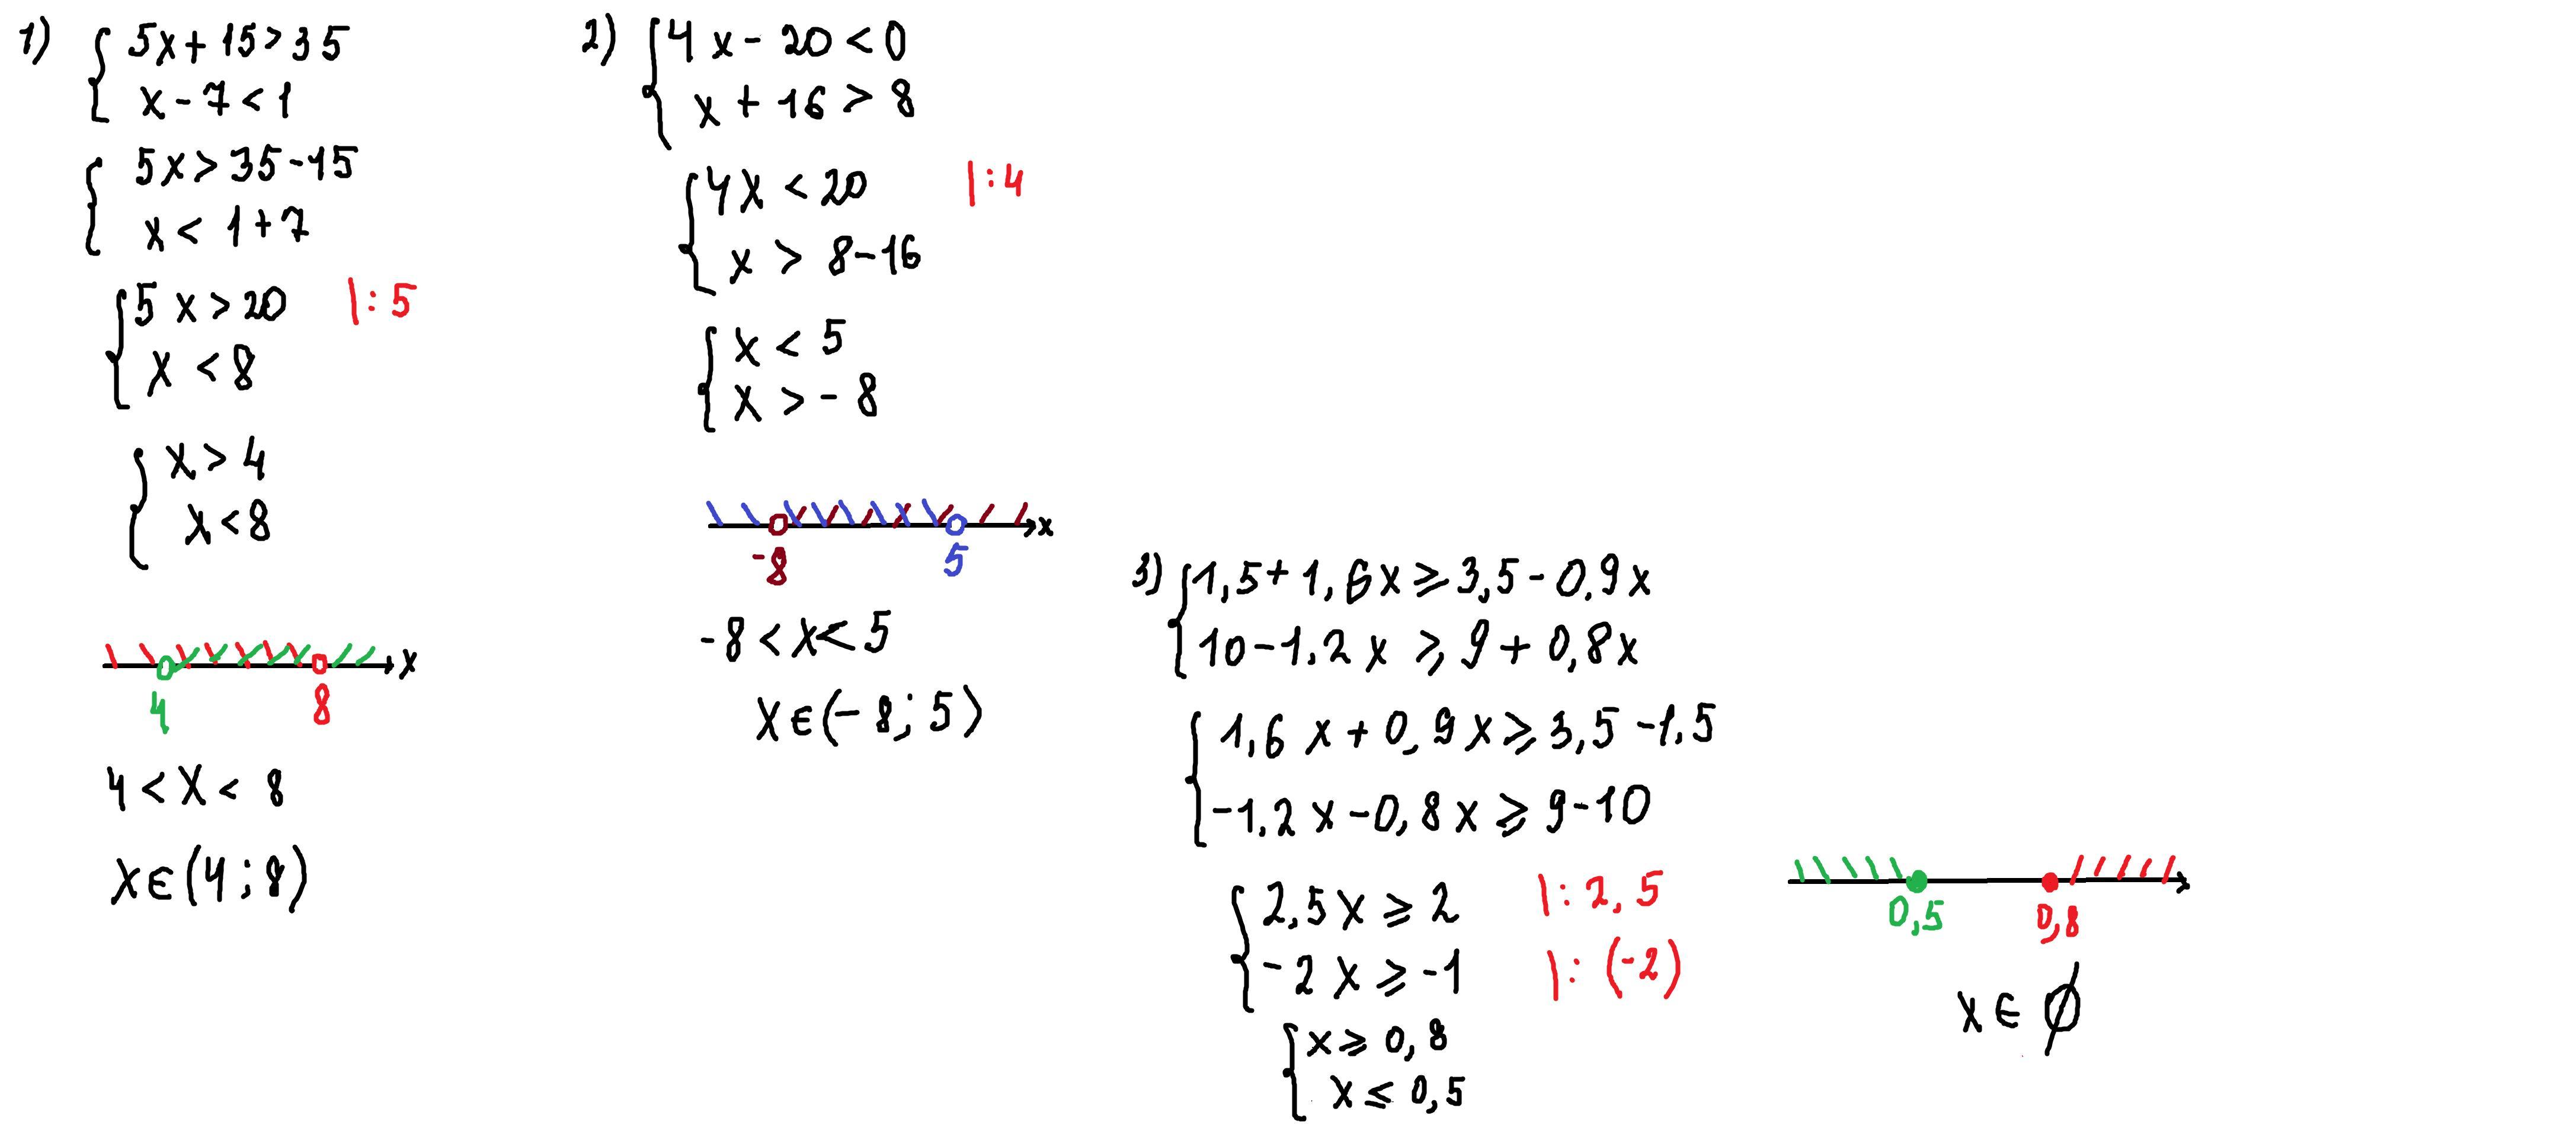 1) { 5x + 15 > 35
x - 7 < 1
{ 5x > 35 - 15
x < 1 + 7
{ 5x > 20 |: 5
x < 8
{ x > 4
x < 8
x
4 8
4 < x < 8
x ∈ (4; 8)
2) { 4x - 20 < 0
x + 16 > 8
{ 4x < 20 |: 4
x > 8 - 16
{ x < 5
x > - 8
x
-8 5
-8 < x < 5
x ∈ (- 8; 5)
3) { 1,5 + 1,6x ⩾ 3,5 - 0,9x
10 - 1,2x ⩾ 9 + 0,8x
{ 1,6x + 0,9x ⩾ 3,5 - 1,5
-1,2x - 0,8x ⩾ 9 - 10
{ 2,5x ⩾ 2 |: 2,5
- 2x ⩾ -1 |: (-2)
{ x ⩾ 0,8
x ⩽ 0,5
0,5 0,8
x ∈ ∅